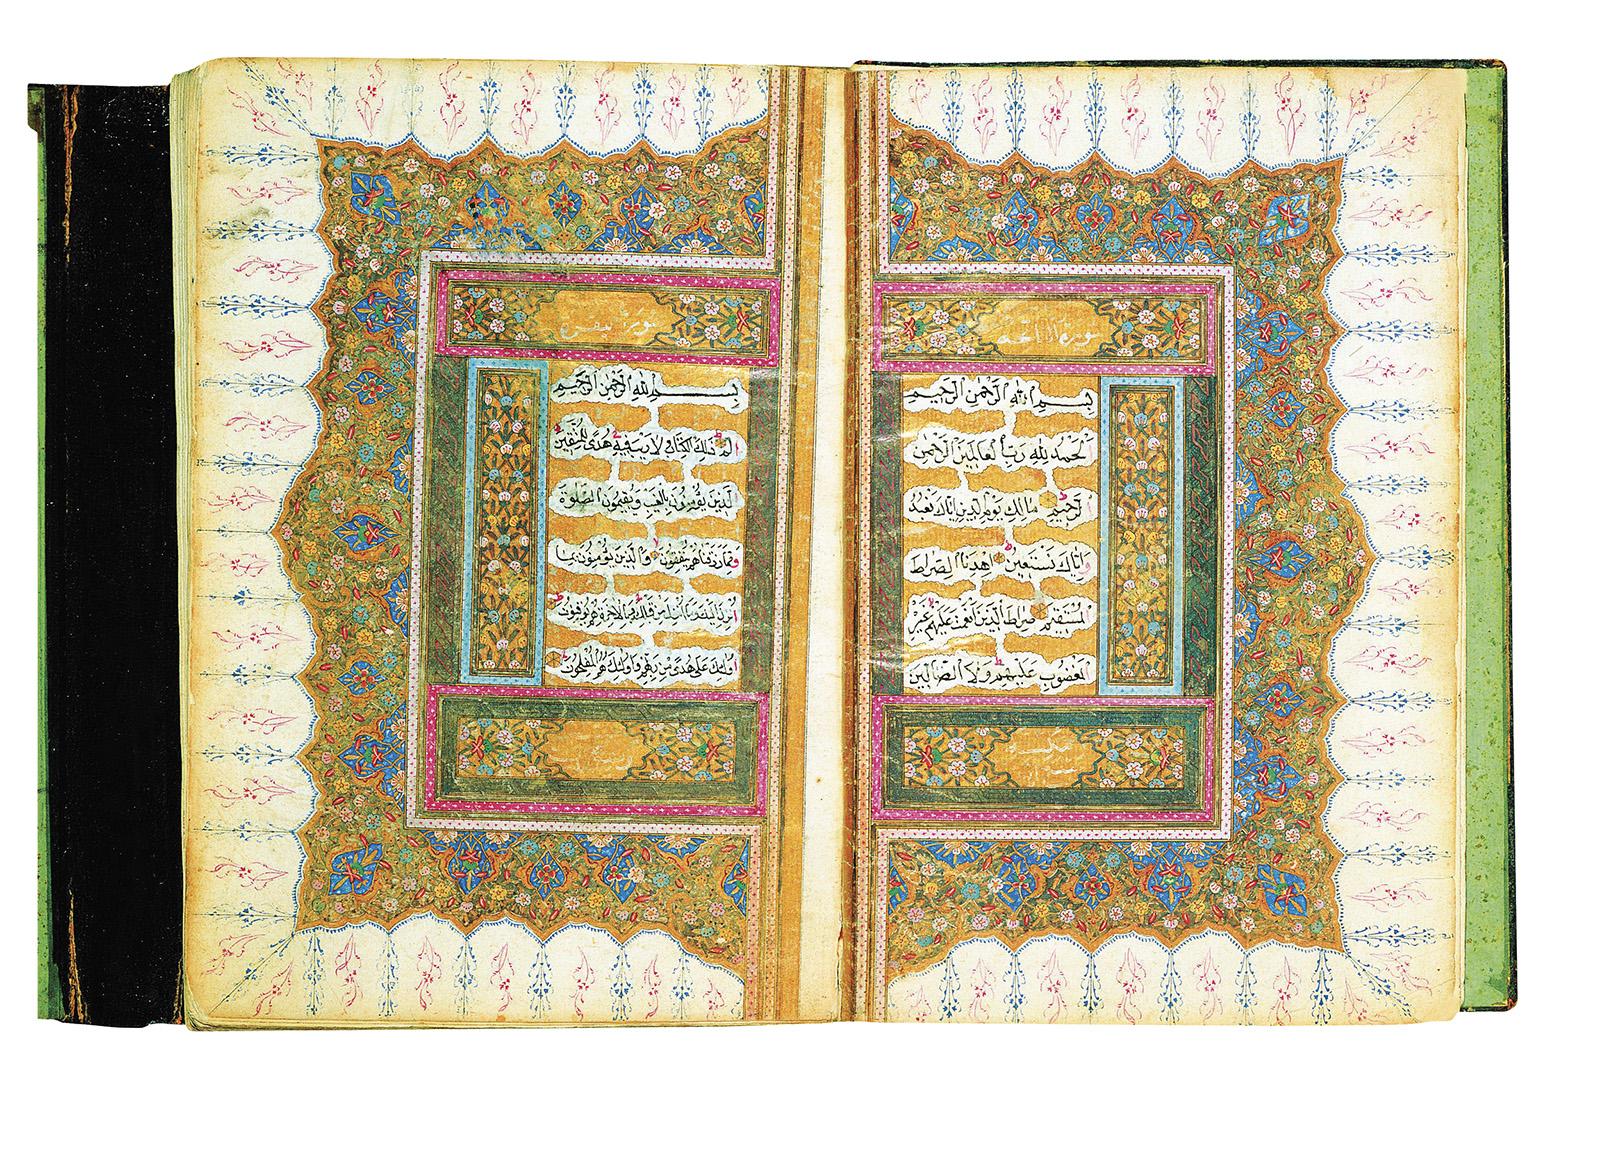 سورة الفاتحة
بِسْمِ اللهِ الرَّحْمٰنِ الرَّحِيمِ
اَلْحَمْدُ لِلّٰهِ رَبِّ الْعَالَمِينَ الرَّحْمٰنِ
الرَّحِيمِ مَالِكِ يَوْمِ الدِّينِ اِيَّاكَ نَعْبُدُ
وَاِيَّاكَ نَسْتَعِينُ اِهْدِنَا الصِّرَاطَ
الْمُسْتَقِيمَ صِرَاطَ الَّذِينَ اَنْعَمْتَ عَلَيْهِمْ غَيْرِ
الْمَغْضُوبِ عَلَيْهِمْ وَلَا الضَّالِّينَ
سورة البقرة
بِسْمِ اللهِ الرَّحْمٰنِ الرَّحِيمِ
الم ذٰلِكَ الْكِتَابُ لَا رَيْبَ فِيهِ هُدًى لِلْمُتَّقِينَ
الَّذِينَ يُؤْمِنُونَ بِالْغَيْبِ وَيُقِيمُونَ الصَّلٰوةَ
وَمِمَّا رَزَقْنَاهُمْ يُنْفِقُونَ وَالَّذِينَ يُؤْمِنُونَ بِمَا
اُنْزِلَ اِلَيْكَ وَمَا اُنْزِلَ مِنْ قَبْلِكَ وَبِالْاٰخِرَةِ هُمْ يُوقِنُونَ
اُولٰئِكَ عَلٰى هُدًى مِنْ رَبِّهِمْ وَاُولٰئِكَ هُمُ الْمُفْلِحُونَ